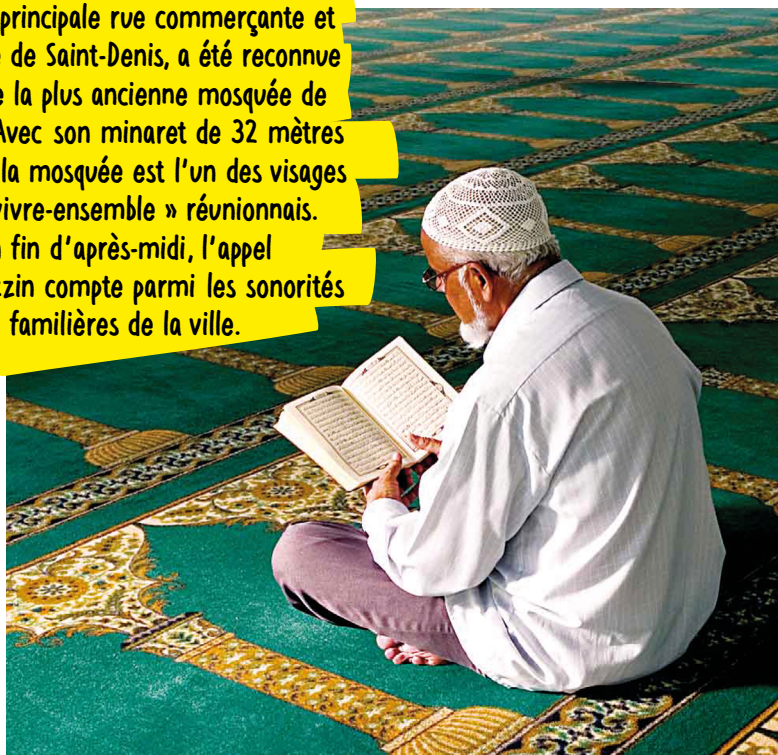 principale rue commerçante et
de Saint-Denis, a été reconnue
la plus ancienne mosquée de
Avec son minaret de 32 mètres
la mosquée est l'un des visages
vivre-ensemble » réunionnais.
fin d'après-midi, l'appel
compte parmi les sonorités
familières de la ville.